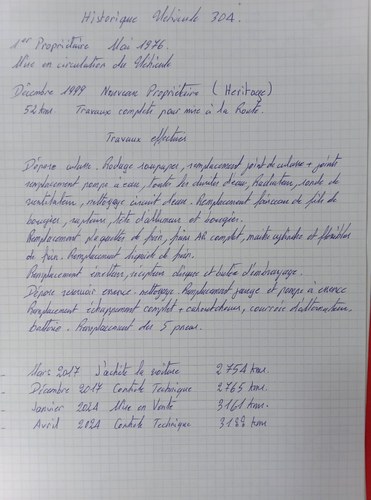 Historique Véhicule 304.
1er Propriétaire Mai 1976.
Mise en circulation du Véhicule
Décembre 1999 Nouveau Propriétaire (Heritage)
52 kms Travaux complets pour mise à la Route.
Travaux effectués
Dépose culasse. Rodage soupapes, remplacement joint de culasse + joints
remplacement pompe à eau, toutes les durites d'eau, Radiateur, sonde de
ventilateur, nettoyage circuit d'eau. Remplacement faisceau de fils de
bougies, rupteur, tête d'allumeur et bougies.
Remplacement plaquettes de frein, freins AR complet, maitre cylindre et flexibles
de frein. Remplacement liquide de frein.
Remplacement émetteur, récepteur disque et butée d'embrayage.
Dépose reservoir essence. nettoyage. Remplacement jauge et pompe à essence
Remplacement échappement complet + caoutchoucs, courroie d'alternateur.
batterie. Remplacement des 5 pneus.
Mars 2017 J'achète la voiture 2754 kms.
- Décembre 2017 Controle Technique 2765 kms.
- Janvier 2024 Mise en Vente 3161 kms.
- Avril 2024 Controle Technique 3188 kms